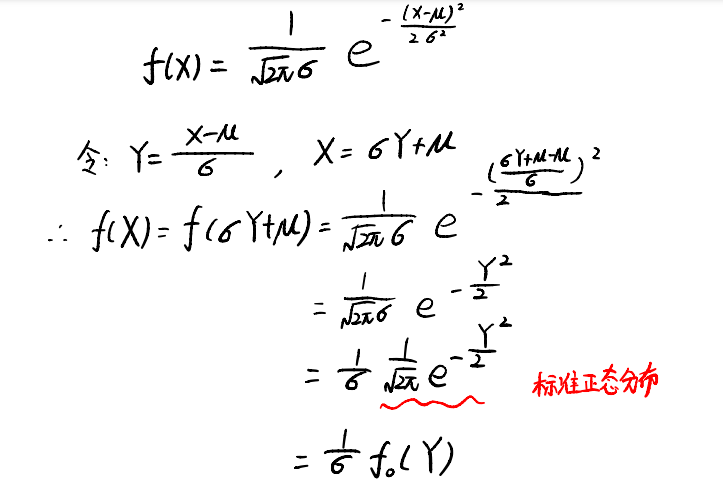 f(X) = \frac{1}{\sqrt{2π}σ} e^{-\frac{(X-μ)^2}{2σ^2}}
令: Y = \frac{X-μ}{σ} , X = σY+μ
∴ f(X) = f(σY+μ) = \frac{1}{\sqrt{2π}σ} e^{-\frac{(\frac{σY+μ-μ}{σ})^2}{2}}
= \frac{1}{\sqrt{2π}σ} e^{-\frac{Y^2}{2}}
= \frac{1}{σ} \frac{1}{\sqrt{2π}} e^{-\frac{Y^2}{2}} 标准正态分布
= \frac{1}{σ} f_0(Y)